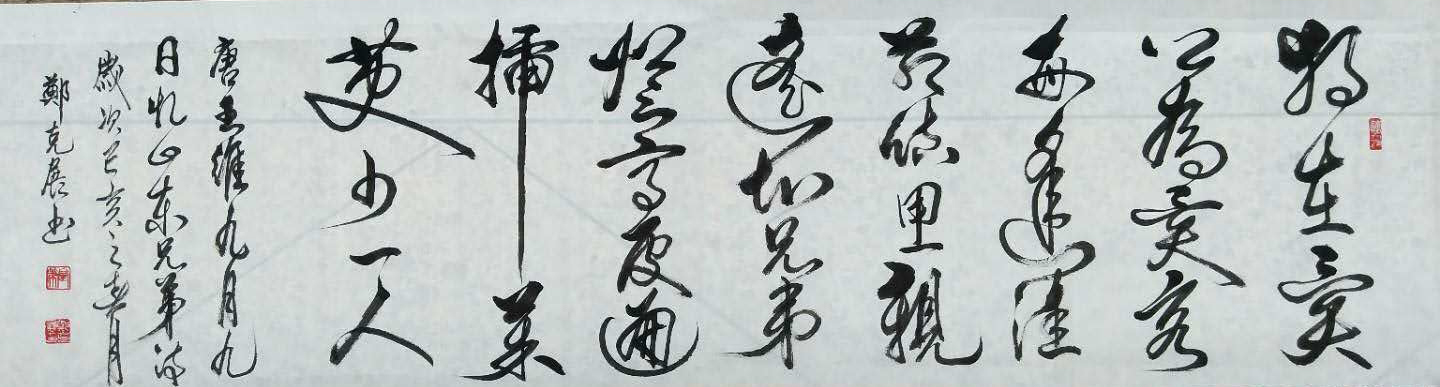 獨在異
鄉為異客
每逢佳
節倍思親
遙知兄弟
登高處遍
插茱
萸少一人
唐王維九月九
日忆山東兄弟诗
歲次己亥之春月
鄭克展书